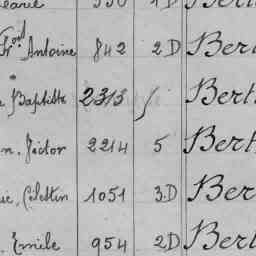 Fr^ord Antoine 842 2D Ber
Baptiste 2313 5 Bert
n, Victor 2214 5 Bert
ie, Célestin 1051 3.D Ber
Emile 954 2D Bert